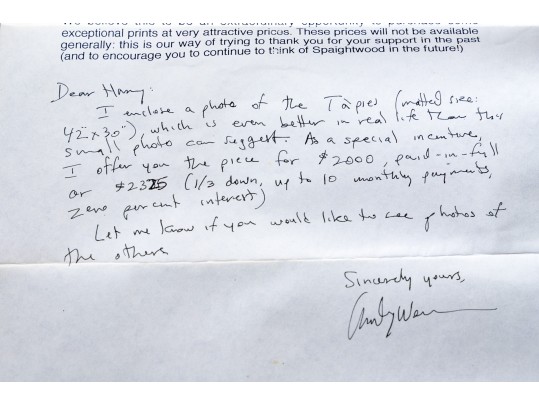 We believe this to be an extraordinary opportunity to purchase some
exceptional prints at very attractive prices. These prices will not be available
generally: this is our way of trying to thank you for your support in the past
(and to encourage you to continue to think of Spaightwood in the future!)
Dear Harry:
I enclose a photo of the Tàpies (matted size:
42"x30"), which is even better in real life than this
small photo can suggest. As a special incentive,
I offer you the piece for $2000, paid-in-full
or $2375 (1/3 down, up to 10 monthly payments,
zero percent interest)
Let me know if you would like to see photos of
the others
Sincerely yours,
Andy